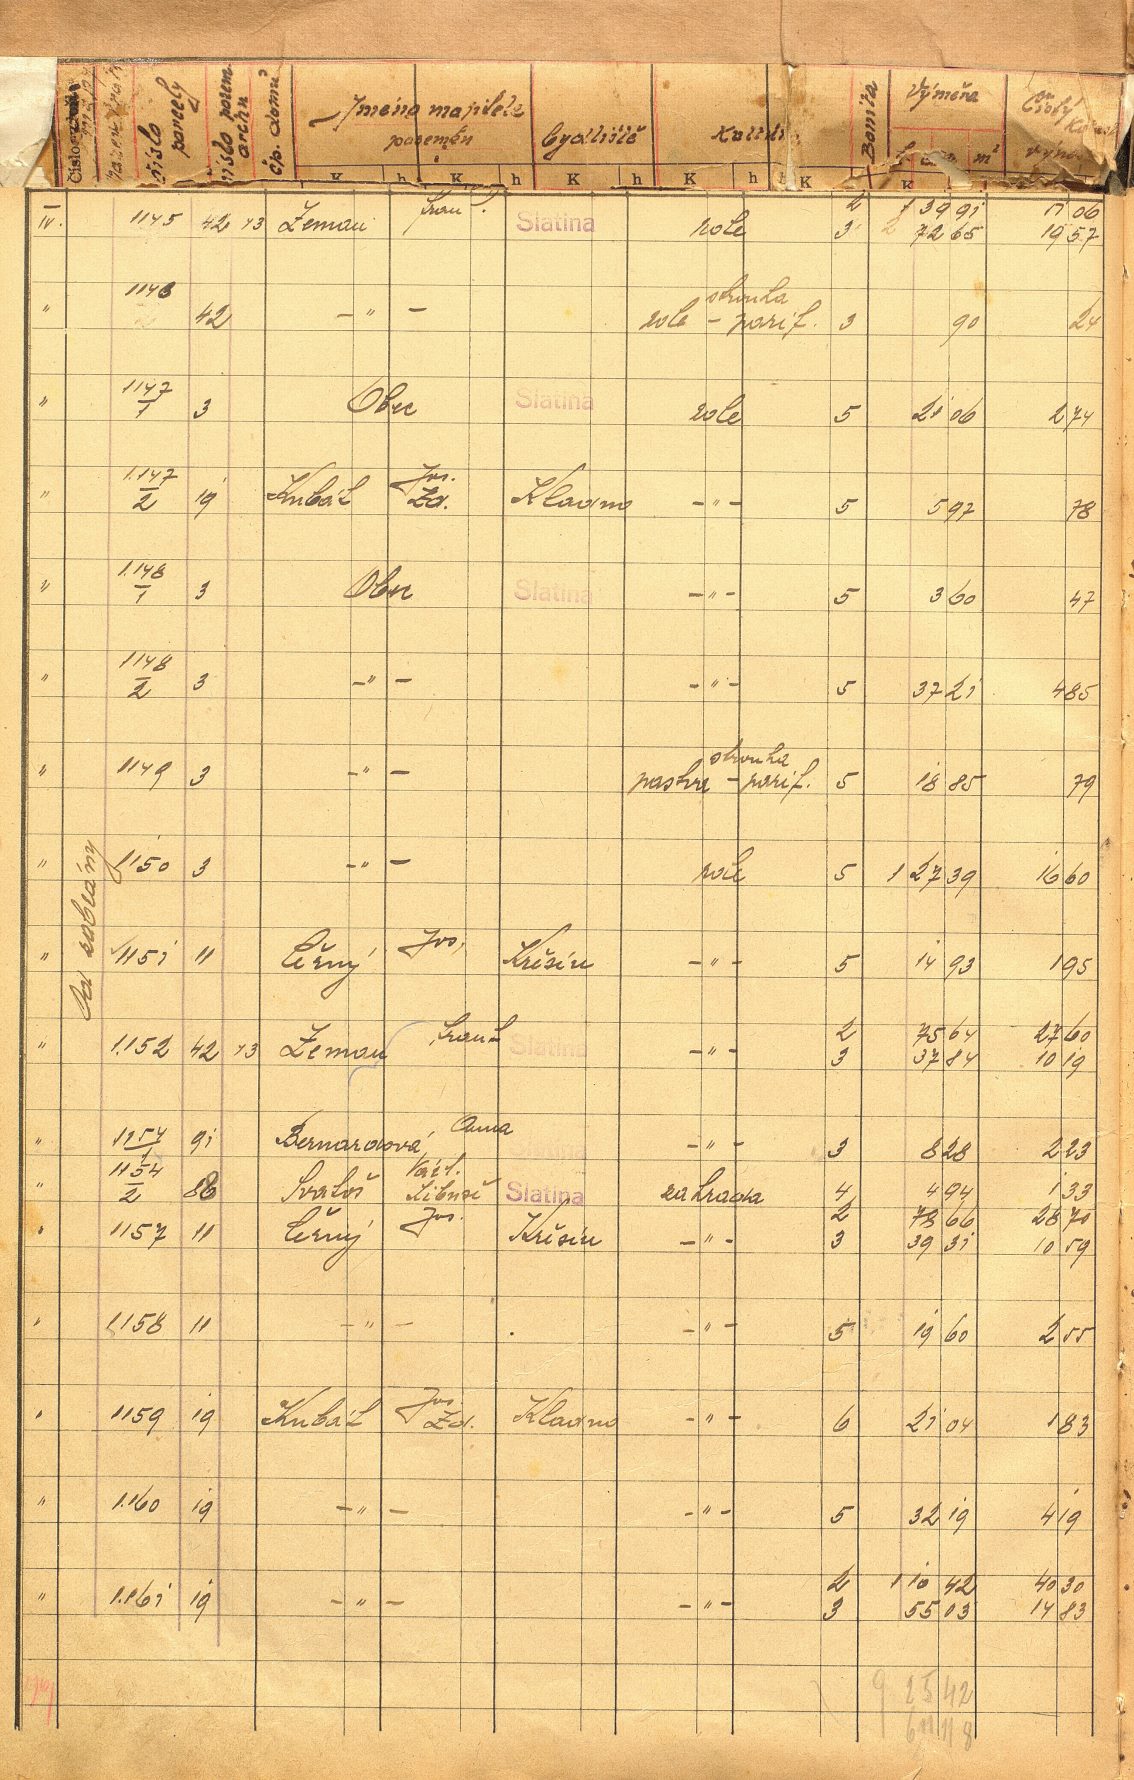 číslo parcely
číslo pozem. archu
čp. domu
Jméno majitele pozemku
bydliště
Bonita
Výměra
m²
K h K h K h K h K K
IV. 1145 42 43 Zeman Slatina role 2 39 91 06
3 72 65 19 57
" 1146 42 – " – role – parif. stouha 3 90 24
" 1147/1 3 Obec Slatina role 5 21 06 2 74
" 1147/2 19 Kubát Jos. Zd. Kladno – " – 5 5 97 78
" 1148/1 3 Obec Slatina – " – 5 3 60 47
" 1148/2 3 – " – – " – 5 37 21 4 85
" 1149 3 – " – pastva – parif. stouha 5 18 85 79
" 1150 3 – " – role 5 1 27 39 16 60
" 1151 11 Černý Jos. Křešín – " – 5 14 93 1 95
" 1152 42 43 Zeman Frant. Slatina – " – 2 75 64 27 60
3 37 84 10 19
" 1154/1 91 Bernardová Anna Slatina – " – 3 8 28 2 23
" 1154/2 86 Svatoš Václ. Libuše Slatina zahrada 4 4 94 1 33
" 1157 11 Černý Jos. Křešín – " – 2 78 66 28 70
3 39 31 10 59
" 1158 11 – " – – " – 5 19 60 2 55
" 1159 19 Kubát Jos. Zd. Kladno – " – 6 21 04 1 83
" 1160 19 – " – – " – 5 32 19 4 19
" 1161 19 – " – – " – 2 1 10 42 40 30
3 55 03 14 83
9 25 42